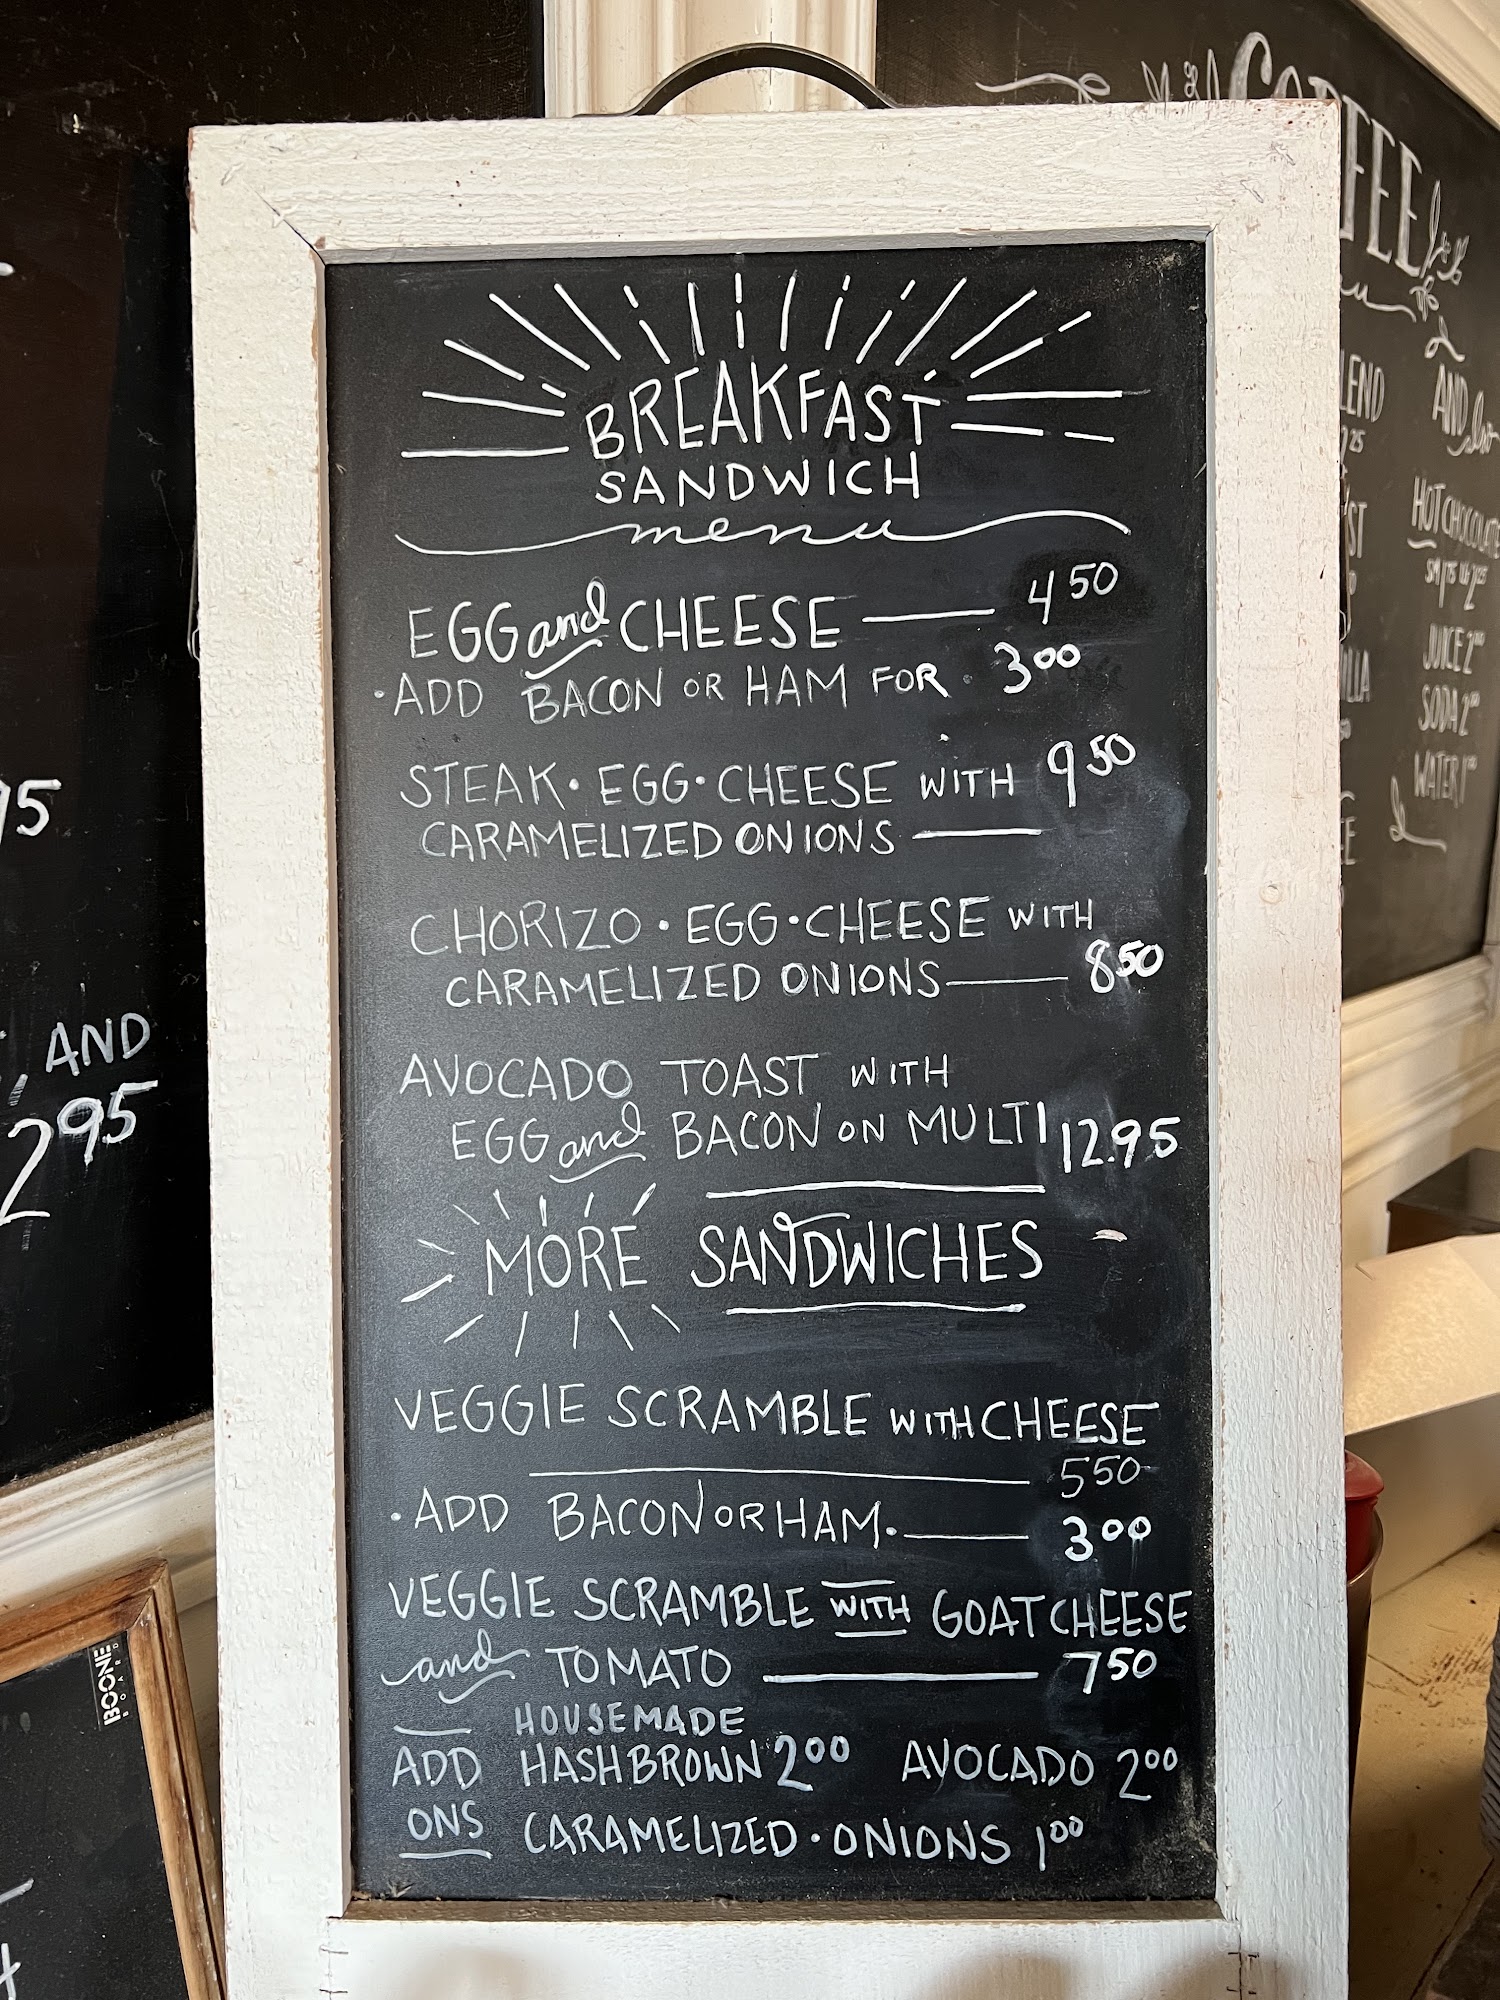 BREAKFAST
SANDWICH
menu
EGG and CHEESE 4 50
• ADD BACON OR HAM FOR 3 00
STEAK • EGG • CHEESE WITH 9 50
CARAMELIZED ONIONS
CHORIZO • EGG • CHEESE WITH
CARAMELIZED ONIONS 8 50
AVOCADO TOAST WITH
EGG and BACON ON MULTI 12.95
MORE SANDWICHES
VEGGIE SCRAMBLE WITH CHEESE
5 50
• ADD BACON OR HAM. 3 00
VEGGIE SCRAMBLE WITH GOAT CHEESE
and TOMATO 7 50
HOUSEMADE
ADD HASHBROWN 2 00 AVOCADO 2 00
ONS CARAMELIZED • ONIONS 1 00
95
, AND
2 95
BOONE
BOARD
COFFEE
LEND
AND
HOT CHOCOLATE
JUICE 2 00
SODA 2 00
WATER 1 00